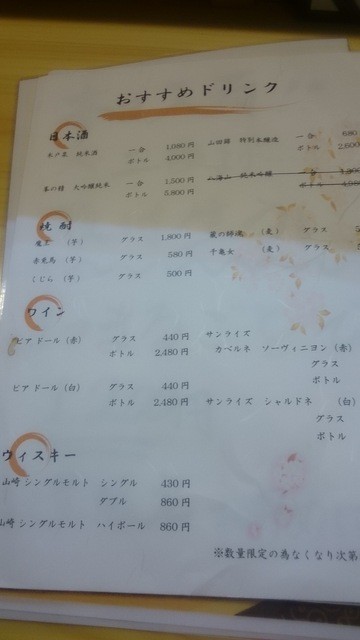 おすすめドリンク
日本酒
純米酒 一合 1,080円 山田錦 特別本醸造 一合 680
ボトル 4,000円 ボトル
大吟醸純米 一合 1,500円 八海山 純米吟醸 一合
ボトル 5,800円 ボトル
焼酎
魔王 (芋) グラス 1,800円 (麦) グラス
赤兎馬 (芋) グラス 580円 千亀女 (麦) グラス
くじら (芋) グラス 500円
ワイン
ピアドール(赤) グラス 440円 サンライズ
ボトル 2,480円 カベルネ ソーヴィニヨン(赤)
グラス
ボトル
ピアドール(白) グラス 440円
ボトル 2,480円 サンライズ シャルドネ (白)
グラス
ボトル
ウィスキー
山崎シングルモルト シングル 430円
ダブル 860円
山崎シングルモルト ハイボール 860円
※数量限定の為なくなり次第